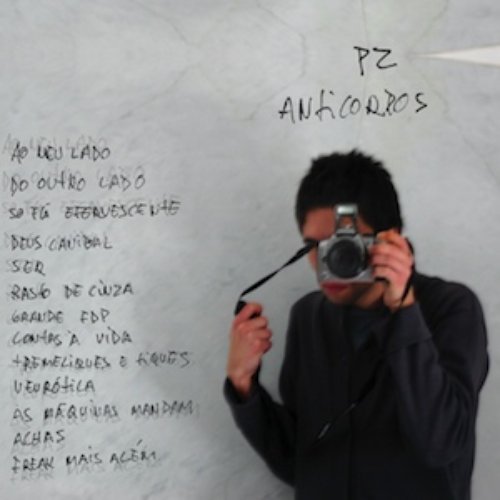 PZ
ANTICORPOS
AO MEU LADO
DO OUTRO LADO
SÓ EU EFERVESCENTE
DEUS CANIBAL
SER
RASTO DE CINZA
GRANDE FDP
CONTAS À VIDA
TREMELIQUES E TIQUES
NEURÓTICA
AS MÁQUINAS MANDAM
ACHAS
FREAK MAIS ALÉM